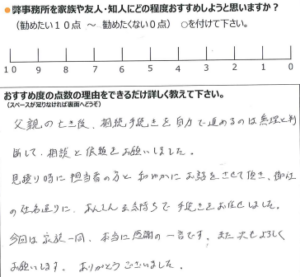 弊事務所を家族や友人・知人にどの程度おすすめしようと思いますか？
（勧めたい１０点 ～ 勧めたくない０点） ○を付けて下さい。
10 9 8 7 6 5 4 3 2 1 0
おすすめ度の点数の理由をできるだけ詳しく教えて下さい。
（スペースが足りなければ裏面へどうぞ）
父親の亡き後、相続手続きを自力で進めるのは無理と判
断して、相談と依頼をお願いしました。
見積り時に担当者の方と和やかにお話をさせて頂き、御社
の 送りに、あんしん 持ちで手続きをお任せしました。
今回は家族一同、本当に感謝の一言です。また よろしく
お願いします。ありがとうございました。